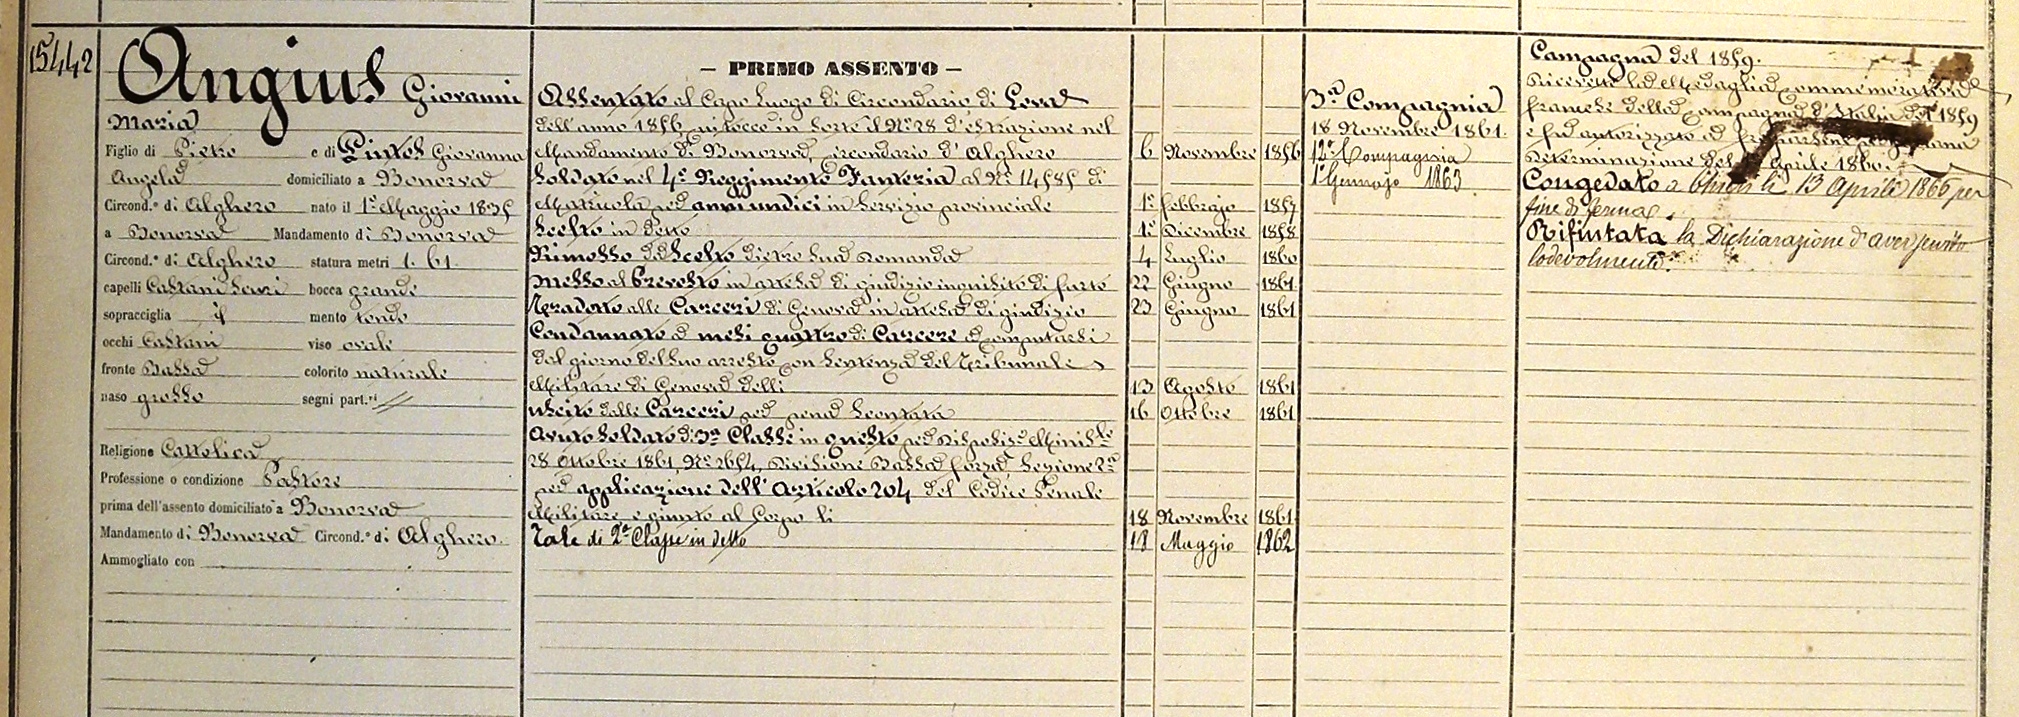 15442
Angius Giovanni
Maria
Figlio di Pietro e di Pintos Giovanna
Angela domiciliato a Bonorva
Circond.º di Alghero nato il 1º Maggio 1835
a Bonorva Mandamento di Bonorva
Circond.º di Alghero statura metri 1. 61
capelli Castani scuri bocca grande
sopracciglia if mento tondo
occhi Castani viso ovale
fronte Bassa colorito naturale
naso grosso segni part.ri //
Religione Cattolica
Professione o condizione Pastore
prima dell'assento domiciliato a Bonorva
Mandamento di Bonorva Circond.º di Alghero.
Ammogliato con
– PRIMO ASSENTO –
Assentato al Capo luogo di Circondario di Leva
dell'anno 1856, cui tocco in sorte il Nº 28 d'estrazione nel
Mandamento di Bonorva, circondario d'Alghero 6 Novembre 1856
Soldato nel 4º Reggimento Fanteria al Nº 14585 di
Matricola per anni undici in servizio provinciale 1º febbrajo 1857
Scelto in detto 1º Dicembre 1858
Rimosso da Scelto dietro sua domanda 4 Luglio 1860
Messo al Prevosto in attesa di giudizio inquisito di furto 22 Giugno 1861
Tradotto alle Carceri di Genova in attesa di giudizio 23 Giugno 1861
Condannato a mesi quattro di Carcere a computarsi
dal giorno del suo arresto con sentenza del Tribunale
Militare di Genova delli 13 Agosto 1861
Uscito dalle Carceri per pena scontata 16 Ottobre 1861
Avuto Soldato di 3ª Classe in questo per disposiz.e Minis.le
28 Ottobre 1861, Nº 2654, Divisione Bassa forza, Sezione 2ª
per applicazione dell'Articolo 204 del Codice Penale
Militare e giunto al Corpo li 18 Novembre 1861
Tale di 2ª Classe in detto 18 Maggio 1862
3ª Compagnia
18 Novembre 1861.
12ª Compagnia
1º Gennajo 1863
Campagna del 1859.
Ricevette la Medaglia Commemorativa
francese della Campagna d'Italia del 1859
e fu autorizzato a
Determinazione del Aprile 1860.
Congedato a Chieti li 13 Aprile 1866 per
fine di ferma.
Rifiutata la Dichiarazione d'aver servito
lodevolmente.